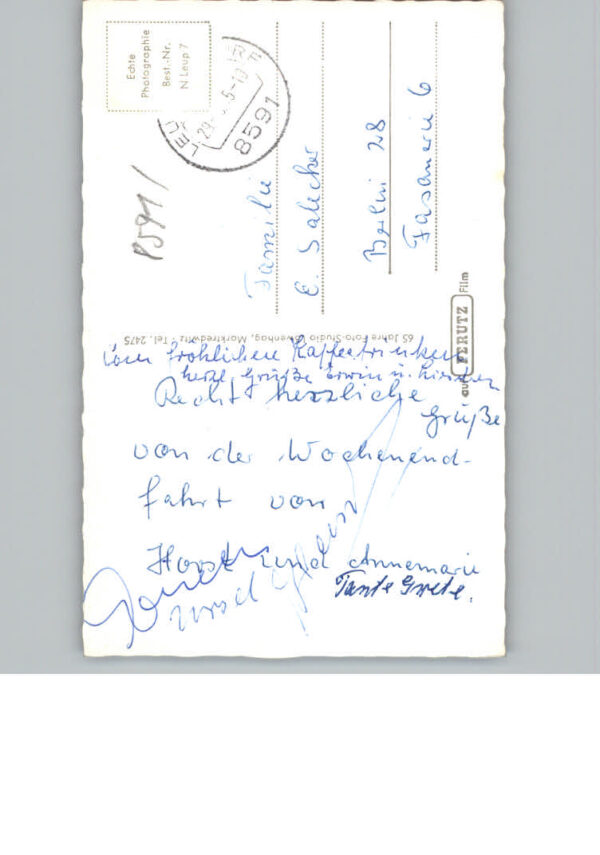 Echte
Photographie
Best.-Nr.
N Leup 7
8591
8591
Familie
E. Salecker
Berlin 28
Fasanerie 6
65 Jahre Foto-Studio Marktredwitz / Tel. 2475
auf PERUTZ Film
vom fröhlichen Kaffeetrinken
herzl. Grüße Erwin u.
Recht herzliche
Grüße
von der Wochenend-
fahrt von
Horst und Annemarie
Tante Grete.